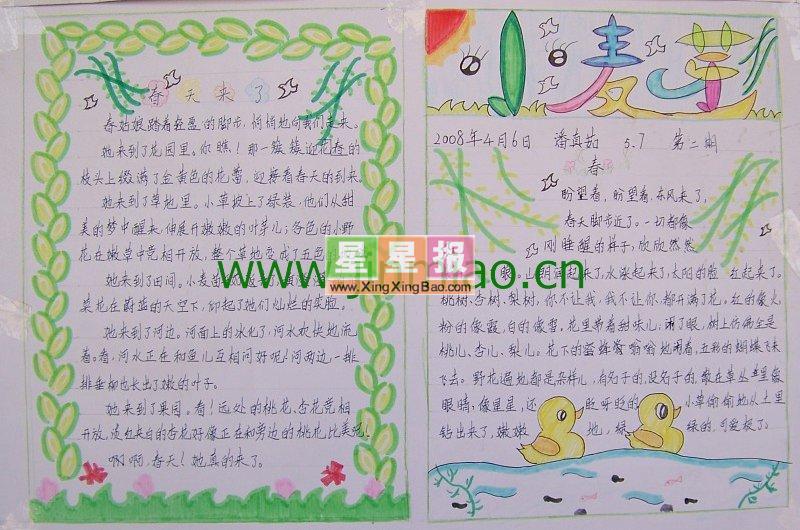 春天来了
春姑娘踏着轻盈的脚步,悄悄地向我们走来。
她来到了花园里。你瞧!那一簇簇迎春花的
枝头上缀满了金黄色的花蕾,迎接着春天的到来。
她来到了草地里。小草披上了绿装,他们从甜
美的梦中醒来,伸展开嫩嫩的叶芽儿;各色的小野
花在嫩草中竞相开放,整个草地变成了五色的
她来到了田间。小麦
菜花在蔚蓝的天空下,仰起了她们灿烂的笑脸。
她来到了河边。河面上的冰化了,河水欢快地流
着。看,河水正在和鱼儿互相问好呢!河两边,一排
排垂柳也长出了嫩的叶子。
她来到了果园。看!远处的桃花、杏花竞相
开放,淡红夹白的杏花好像正在和旁边的桃花比美呢!
啊啊,春天!她真的来了。
小麦草
2008年4月6日 潘真茹 5.7 第二期
春
盼望着,盼望着,东风来了,
春天脚步近了。一切都像
刚睡醒的样子,欣欣然张
眼。山朗润起来了,水涨起来了,太阳的脸 红起来了。
桃树、杏树、梨树,你不让我,我不让你,都开满了花。红的像火,
粉的像霞,白的像雪。花里带着甜味儿;闭了眼,树上仿佛全是
桃儿、杏儿、梨儿。花下的蜜蜂嗡嗡地闹着,五彩的蝴蝶飞来
飞去。野花遍地都是:杂样儿,有名字的,没名字的,散在草丛里像
眼睛,像星星,还 眨呀眨的 小草偷偷地从土里
钻出来了,嫩嫩 地,绿 绿的,可爱极了。
星星报
www.XingXingBao.com
www.
bao.cn